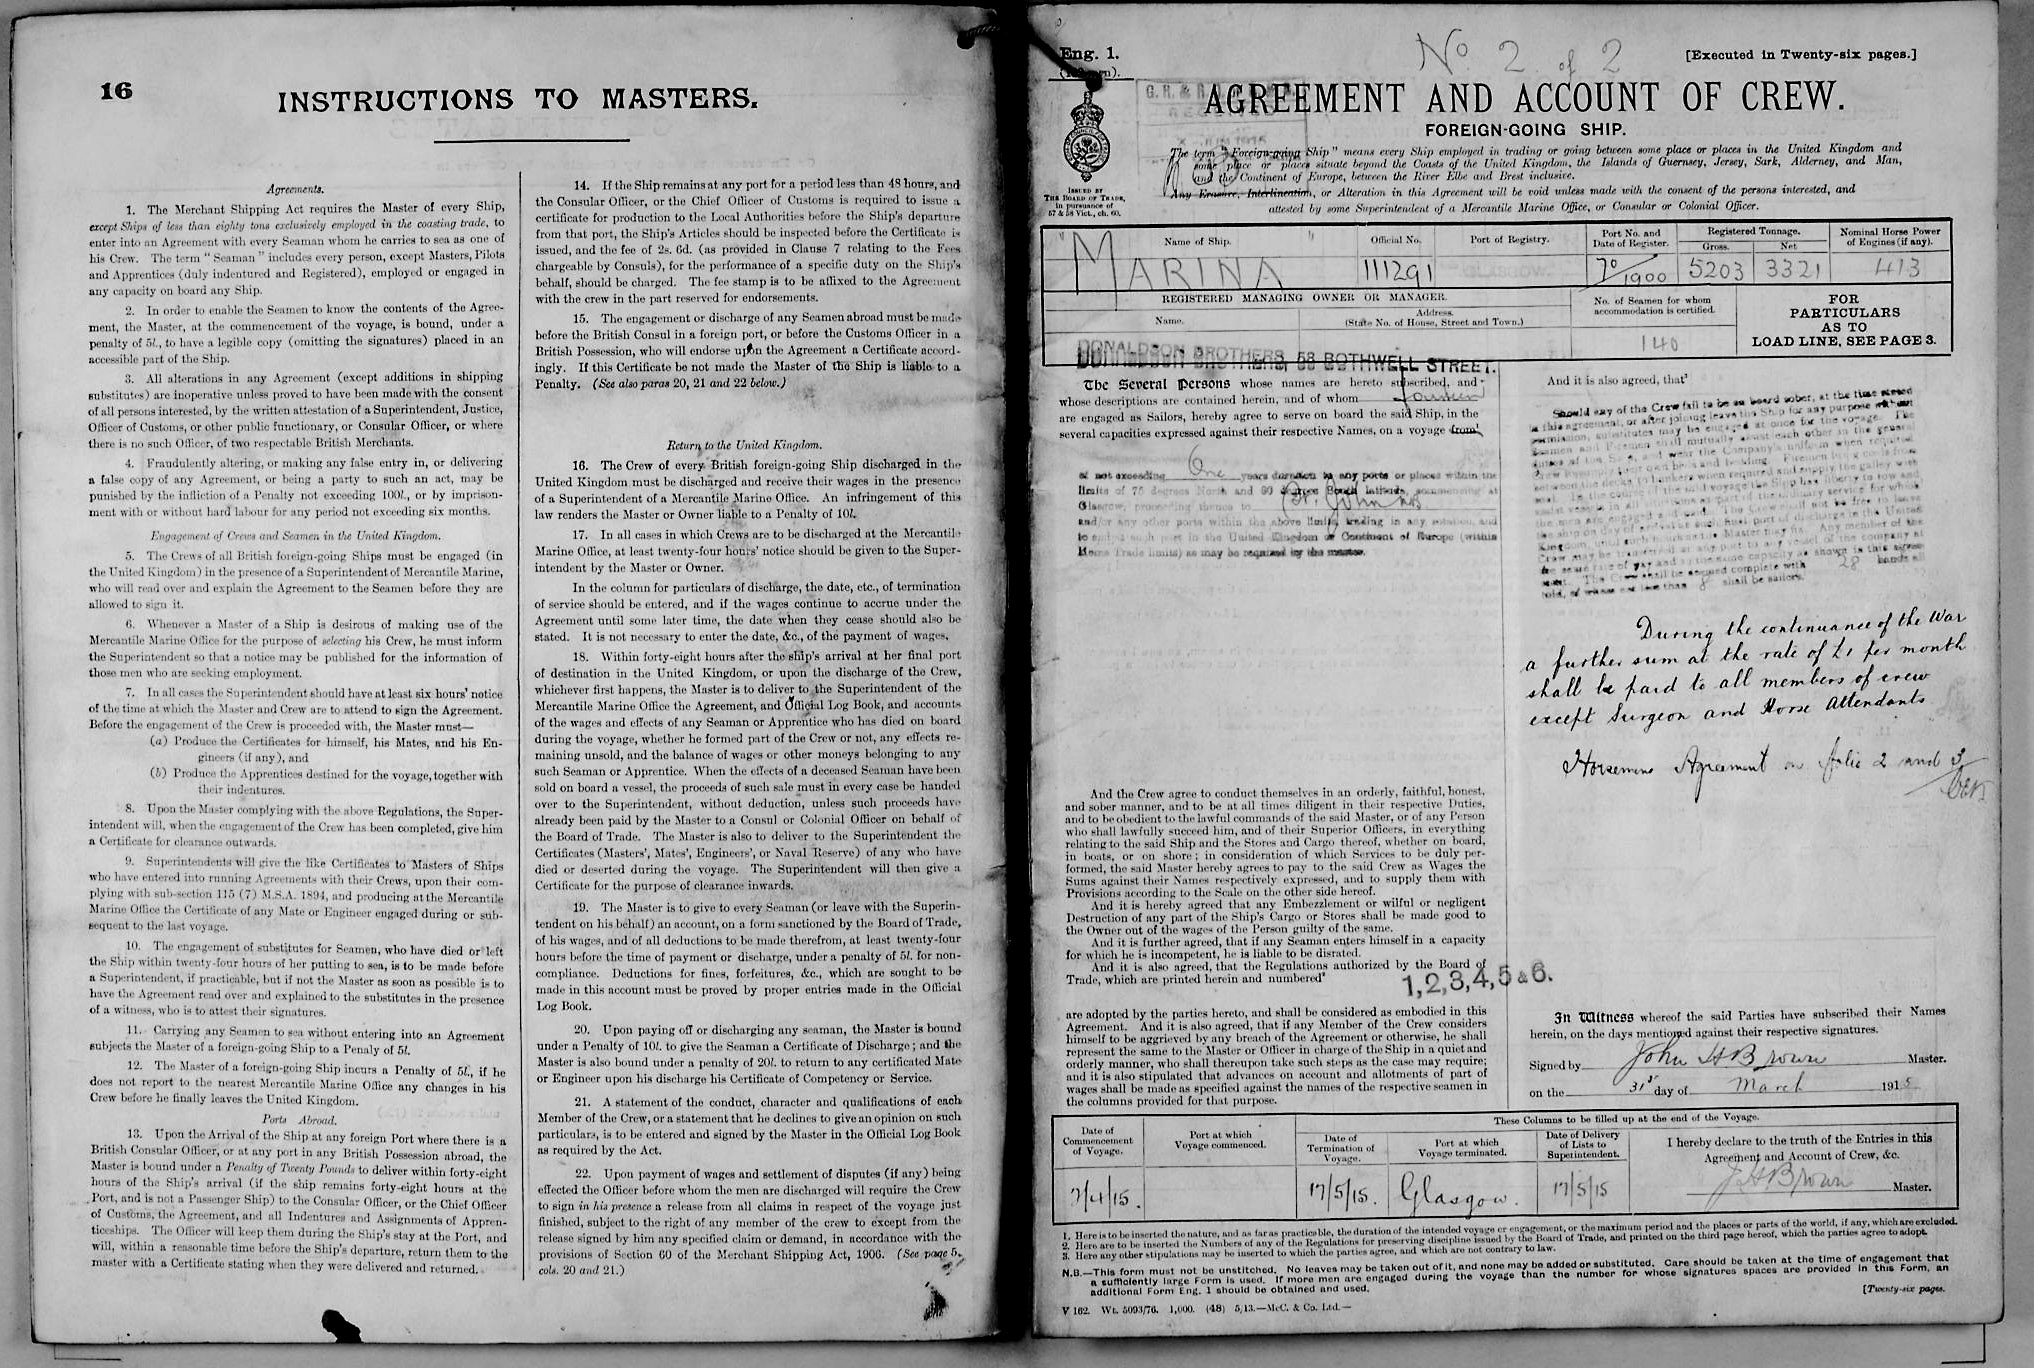 16
INSTRUCTIONS TO MASTERS.
Agreements.
1. The Merchant Shipping Act requires the Master of every Ship,
except Ships of less than eighty tons exclusively employed in the coasting trade, to
enter into an Agreement with every Seaman whom he carries to sea as one of
his Crew. The term "Seaman" includes every person, except Masters, Pilots
and Apprentices (duly indentured and Registered), employed or engaged in
any capacity on board any Ship.
2. In order to enable the Seamen to know the contents of the Agree-
ment, the Master, at the commencement of the voyage, is bound, under a
penalty of 5l., to have a legible copy (omitting the signatures) placed in an
accessible part of the Ship.
3. All alterations in any Agreement (except additions in shipping
substitutes) are inoperative unless proved to have been made with the consent
of all persons interested, by the written attestation of a Superintendent, Justice,
Officer of Customs, or other public functionary, or Consular Officer, or where
there is no such Officer, of two respectable British Merchants.
4. Fraudulently altering, or making any false entry in, or delivering
a false copy of any Agreement, or being a party to such an act, may be
punished by the infliction of a Penalty not exceeding 100l., or by imprison-
ment with or without hard labour for any period not exceeding six months.
Engagement of Crews and Seamen in the United Kingdom.
5. The Crews of all British foreign-going Ships must be engaged (in
the United Kingdom) in the presence of a Superintendent of Mercantile Marine,
who will read over and explain the Agreement to the Seamen before they are
allowed to sign it.
6. Whenever a Master of a Ship is desirous of making use of the
Mercantile Marine Office for the purpose of selecting his Crew, he must inform
the Superintendent so that a notice may be published for the information of
those men who are seeking employment.
7. In all cases the Superintendent should have at least six hours' notice
of the time at which the Master and Crew are to attend to sign the Agreement.
Before the engagement of the Crew is proceeded with, the Master must—
(a) Produce the Certificates for himself, his Mates, and his En-
gineers (if any), and
(b) Produce the Apprentices destined for the voyage, together with
their indentures.
8. Upon the Master complying with the above Regulations, the Super-
intendent will, when the engagement of the Crew has been completed, give him
a Certificate for clearance outwards.
9. Superintendents will give the like Certificates to Masters of Ships
who have entered into running Agreements with their Crews, upon their com-
plying with sub-section 115 (7) M.S.A. 1894, and producing at the Mercantile
Marine Office the Certificate of any Mate or Engineer engaged during or sub-
sequent to the last voyage.
10. The engagement of substitutes for Seamen, who have died or left
the Ship within twenty-four hours of her putting to sea, is to be made before
a Superintendent, if practicable, but if not the Master as soon as possible is to
have the Agreement read over and explained to the substitutes in the presence
of a witness, who is to attest their signatures.
11. Carrying any Seamen to sea without entering into an Agreement
subjects the Master of a foreign-going Ship to a Penaly of 5l.
12. The Master of a foreign-going Ship incurs a Penalty of 5l., if he
does not report to the nearest Mercantile Marine Office any changes in his
Crew before he finally leaves the United Kingdom.
Ports Abroad.
13. Upon the Arrival of the Ship at any foreign Port where there is a
British Consular Officer, or at any port in any British Possession abroad, the
Master is bound under a Penalty of Twenty Pounds to deliver within forty-eight
hours of the Ship's arrival (if the ship remains forty-eight hours at the
Port, and is not a Passenger Ship) to the Consular Officer, or the Chief Officer
of Customs, the Agreement, and all Indentures and Assignments of Appren-
ticeships. The Officer will keep them during the Ship's stay at the Port, and
will, within a reasonable time before the Ship's departure, return them to the
master with a Certificate stating when they were delivered and returned.
14. If the Ship remains at any port for a period less than 48 hours, and
the Consular Officer, or the Chief Officer of Customs is required to issue a
certificate for production to the Local Authorities before the Ship's departure
from that port, the Ship's Articles should be inspected before the Certificate is
issued, and the fee of 2s. 6d. (as provided in Clause 7 relating to the Fees
chargeable by Consuls), for the performance of a specific duty on the Ship's
behalf, should be charged. The fee stamp is to be affixed to the Agreement
with the crew in the part reserved for endorsements.
15. The engagement or discharge of any Seamen abroad must be made
before the British Consul in a foreign port, or before the Customs Officer in a
British Possession, who will endorse upon the Agreement a Certificate accord-
ingly. If this Certificate be not made the Master of the Ship is liable to a
Penalty. (See also paras 20, 21 and 22 below.)
Return to the United Kingdom.
16. The Crew of every British foreign-going Ship discharged in the
United Kingdom must be discharged and receive their wages in the presence
of a Superintendent of a Mercantile Marine Office. An infringement of this
law renders the Master or Owner liable to a Penalty of 10l.
17. In all cases in which Crews are to be discharged at the Mercantile
Marine Office, at least twenty-four hours' notice should be given to the Super-
intendent by the Master or Owner.
In the column for particulars of discharge, the date, etc., of termination
of service should be entered, and if the wages continue to accrue under the
Agreement until some later time, the date when they cease should also be
stated. It is not necessary to enter the date, &c., of the payment of wages.
18. Within forty-eight hours after the ship's arrival at her final port
of destination in the United Kingdom, or upon the discharge of the Crew,
whichever first happens, the Master is to deliver to the Superintendent of the
Mercantile Marine Office the Agreement, and Official Log Book, and accounts
of the wages and effects of any Seaman or Apprentice who has died on board
during the voyage, whether he formed part of the Crew or not, any effects re-
maining unsold, and the balance of wages or other moneys belonging to any
such Seaman or Apprentice. When the effects of a deceased Seaman have been
sold on board a vessel, the proceeds of such sale must in every case be handed
over to the Superintendent, without deduction, unless such proceeds have
already been paid by the Master to a Consul or Colonial Officer on behalf of
the Board of Trade. The Master is also to deliver to the Superintendent the
Certificates (Masters', Mates', Engineers', or Naval Reserve) of any who have
died or deserted during the voyage. The Superintendent will then give a
Certificate for the purpose of clearance inwards.
19. The Master is to give to every Seaman (or leave with the Superin-
tendent on his behalf) an account, on a form sanctioned by the Board of Trade,
of his wages, and of all deductions to be made therefrom, at least twenty-four
hours before the time of payment or discharge, under a penalty of 5l. for non-
compliance. Deductions for fines, forfeitures, &c., which are sought to be
made in this account must be proved by proper entries made in the Official
Log Book.
20. Upon paying off or discharging any seaman, the Master is bound
under a Penalty of 10l. to give the Seaman a Certificate of Discharge; and the
Master is also bound under a penalty of 20l. to return to any certificated Mate
or Engineer upon his discharge his Certificate of Competency or Service.
21. A statement of the conduct, character and qualifications of each
Member of the Crew, or a statement that he declines to give an opinion on such
particulars, is to be entered and signed by the Master in the Official Log Book
as required by the Act.
22. Upon payment of wages and settlement of disputes (if any) being
effected the Officer before whom the men are discharged will require the Crew
to sign in his presence a release from all claims in respect of the voyage just
finished, subject to the right of any member of the crew to except from the
release signed by him any specified claim or demand, in accordance with the
provisions of Section 60 of the Merchant Shipping Act, 1906. (See page 5,
cols. 20 and 21.)
Eng. 1.
No 2 of 2
[Executed in Twenty-six pages.]
AGREEMENT AND ACCOUNT OF CREW.
FOREIGN-GOING SHIP.
The term "Foreign-going Ship" means every Ship employed in trading or going between some place or places in the United Kingdom and
some place or places situate beyond the Coasts of the United Kingdom, the Islands of Guernsey, Jersey, Sark, Alderney, and Man,
and the Continent of Europe, between the River Elbe and Brest inclusive.
Any Erasure, Interlineation, or Alteration in this Agreement will be void unless made with the consent of the persons interested, and
attested by some Superintendent of a Mercantile Marine Office, or Consular or Colonial Officer.
ISSUED BY
THE BOARD OF TRADE,
in pursuance of
57 & 58 Vict., ch. 60.
Name of Ship.
Official No.
Port of Registry.
Port No. and
Date of Register.
Registered Tonnage.
Gross.
Net
Nominal Horse Power
of Engines (if any).
"MARINA"
111291
GLASGOW
70/1900
5203
3321
413
REGISTERED MANAGING OWNER OR MANAGER.
Name.
Address.
(State No. of House, Street and Town.)
No. of Seamen for whom
accommodation is certified.
140
FOR
PARTICULARS
AS TO
LOAD LINE, SEE PAGE 3.
DONALDSON BROTHERS, 58 BOTHWELL STREET.
The Several Persons whose names are hereto subscribed, and
whose descriptions are contained herein, and of whom
are engaged as Sailors, hereby agree to serve on board the said Ship, in the
several capacities expressed against their respective Names, on a voyage from
of not exceeding One years duration to any ports or places within the
limits of 75 degrees North and 60 degrees South latitude, commencing at
Glasgow, proceeding thence to St. John NB
and/or any other ports within the above limits, trading in any rotation, and
to end at such port in the United Kingdom or Continent of Europe (within
Home Trade limits) as may be required by the master.
And the Crew agree to conduct themselves in an orderly, faithful, honest,
and sober manner, and to be at all times diligent in their respective Duties,
and to be obedient to the lawful commands of the said Master, or of any Person
who shall lawfully succeed him, and of their Superior Officers, in everything
relating to the said Ship and the Stores and Cargo thereof, whether on board,
in boats, or on shore; in consideration of which Services to be duly per-
formed, the said Master hereby agrees to pay to the said Crew as Wages the
Sums against their Names respectively expressed, and to supply them with
Provisions according to the Scale on the other side hereof.
And it is hereby agreed that any Embezzlement or wilful or negligent
Destruction of any part of the Ship's Cargo or Stores shall be made good to
the Owner out of the wages of the Person guilty of the same.
And it is further agreed, that if any Seaman enters himself in a capacity
for which he is incompetent, he is liable to be disrated.
And it is also agreed, that the Regulations authorized by the Board of
Trade, which are printed herein and numbered
1,2,3,4,5 & 6.
are adopted by the parties hereto, and shall be considered as embodied in this
Agreement. And it is also agreed, that if any Member of the Crew considers
himself to be aggrieved by any breach of the Agreement or otherwise, he shall
represent the same to the Master or Officer in charge of the Ship in a quiet and
orderly manner, who shall thereupon take such steps as the case may require;
and it is also stipulated that advances on account and allotments of part of
wages shall be made as specified against the names of the respective seamen in
the columns provided for that purpose.
And it is also agreed, that
Should any of the Crew fail to be on board sober, at the time stated
in this agreement, or after joining leave the Ship for any purpose without
permission, substitutes may be engaged at once for the voyage. The
Seamen and Firemen shall mutually assist each other in the general
duties of the Ship, and wear the Company's uniform when required.
shall be sailors.
During the continuance of the War
a further sum at the rate of £1 per month
shall be paid to all members of crew
except Surgeon and Horse Attendants
Horsemens Agreement on folio 2 and 3
In Witness whereof the said Parties have subscribed their Names
herein, on the days mentioned against their respective signatures.
Signed by John H Brown Master.
on the 31st day of March 1915
These Columns to be filled up at the end of the Voyage.
Date of
Commencement
of Voyage.
Port at which
Voyage commenced.
Date of
Termination of
Voyage.
Port at which
Voyage terminated.
Date of Delivery
of Lists to
Superintendent.
I hereby declare to the truth of the Entries in this
Agreement and Account of Crew, &c.
7/4/15.
17/5/15.
Glasgow.
17/5/15
J H Brown Master.
1. Here is to be inserted the nature, and as far as practicable, the duration of the intended voyage or engagement, or the maximum period and the places or parts of the world, if any, which are excluded.
2. Here are to be inserted the Numbers of any of the Regulations for preserving discipline issued by the Board of Trade, and printed on the third page hereof, which the parties agree to adopt.
3. Here any other stipulations may be inserted to which the parties agree, and which are not contrary to law.
N.B.—This form must not be unstitched. No leaves may be taken out of it, and none may be added or substituted. Care should be taken at the time of engagement that
a sufficiently large Form is used. If more men are engaged during the voyage than the number for whose signatures spaces are provided in this Form, an
additional Form Eng. 1 should be obtained and used.
[Twenty-six pages.
V 162. Wt. 5093/76. 1,000. (48) 5,13.—McC. & Co. Ltd.—